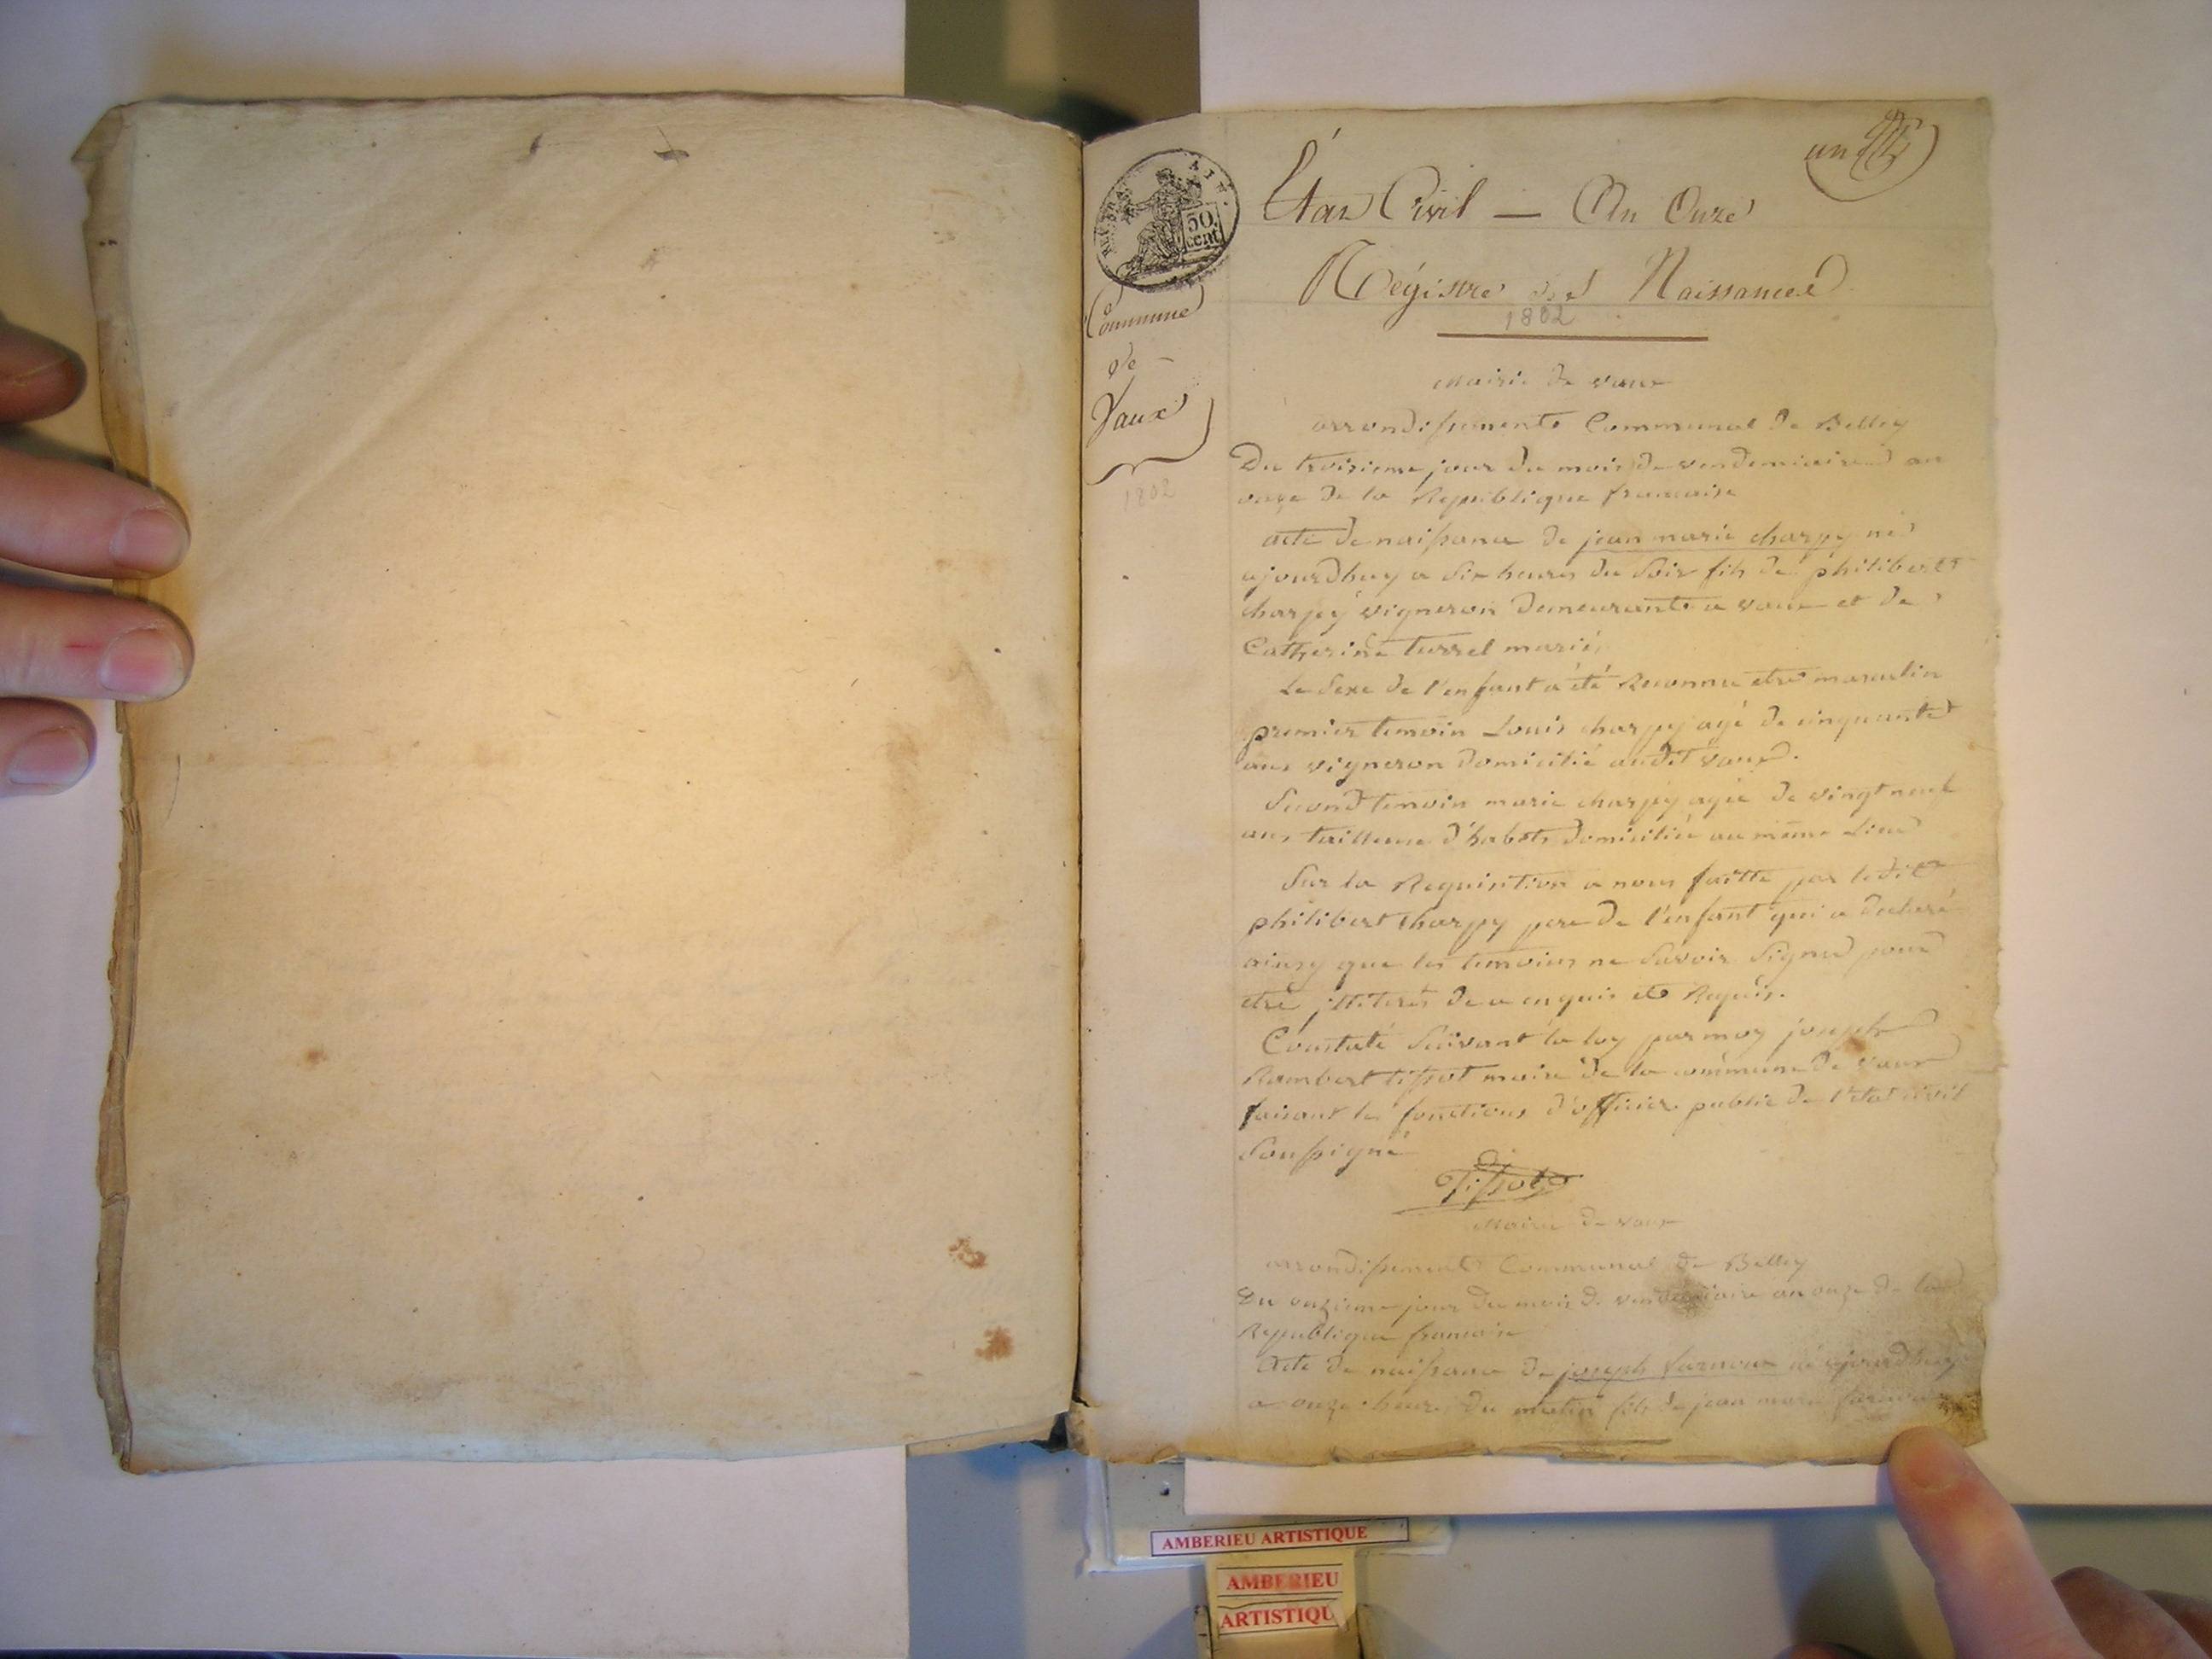 un
AIN.
50
cent
État Civil — An Onze
Régistre des Naissances
1802
Commune
de
Vaux
1802
Mairie de vaux
arrondissement Communal de Belley
Du troisieme jour du mois de vendemiaire an
onze de la Republique francaise
acte de naissance de jean marie charpy né
ajourdhuy a six heures du soir fils de philibert
charpy vigneron demeurant a vaux et de
Catherine turrel mariés
Le sexe de l'enfant a été Reconnu etre masculin
premier temoin Louis charpy agé de cinquante
ans vigneron domicilié audit vaux.
Second temoin marie charpy agée de vingt neuf
ans tailleuse d'habits domiciliée au même Lieu
Sur la Requisition a nous faitte par ledit
philibert charpy pere de l'enfant qui a declaré
ainsy que les temoins ne savoir signer pour
etre illiterés de a enquis et Requis.
Constaté Suivant la loy par moy joseph
Rambert tissot maire de la commune de vaux
faisant les fonctions d'officier public de l'etat civil
Soussigné
Tissot
Mairie de vaux
arrondissement Communal de Belley
Du onzieme jour du mois de vendemiaire an onze de la
Republique francaise
Acte de naissance de joseph né ajourdhuy
a onze heures du matin fils de jean marie
AMBERIEU ARTISTIQUE
AMBERIEU
ARTISTIQU